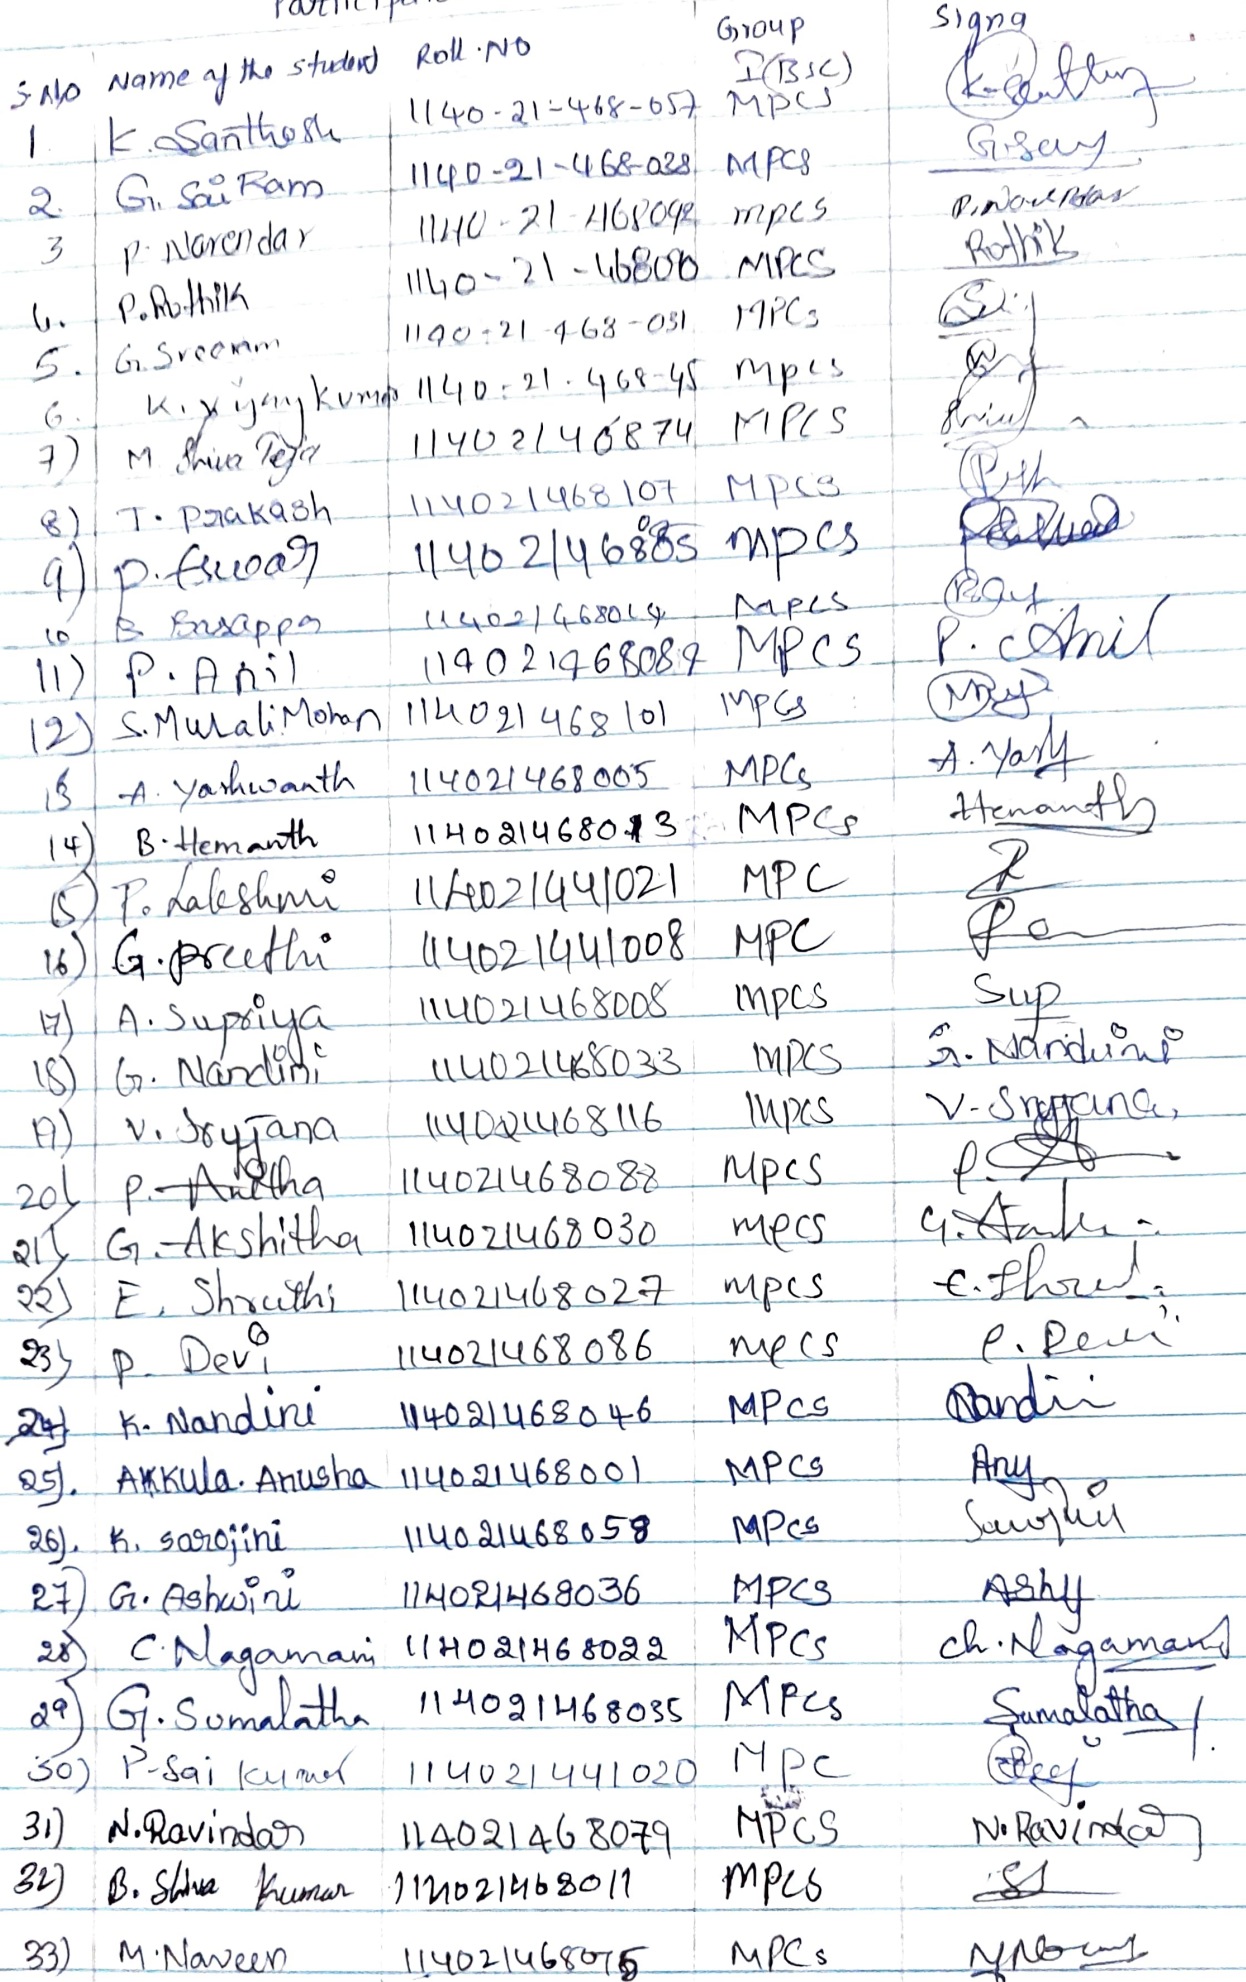 S.No Name of the student Roll.No Group I(BSC) Signa
1 K. Santhosh 1140-21-468-057 MPCS
2. G. Sai Ram 1140-21-468-028 MPCS G.Say
3 P. Narendar 1140-21-468092 mpcs P. Narendar
4. P. Rothik 1140-21-46800 MPCS Rothik
5. G. Sreeram 1140-21-468-031 MPCs
6. K. Vijay Kumar 1140-21.468-45 mpcs
7) M Shiva Teja 11402146874 MPCS
8) T. Prakash 114021468107 MPCS
9) P. Eswar mpcs
10 B Basappa 114021468014 MPCS
11) P. Anil 114021468089 MPCS P. Anil
12) S. Murali Mohan 114021468101 MPCs
13 A. Yashwanth 114021468005 MPCs A. Yash
14) B. Hemanth 114021468013 MPCs Hemanth
15) P. Lakshmi 114021441021 MPC
16) G. preethi 114021441008 MPC
17) A. Supriya 114021468008 mpcs Sup
18) G. Nandini 114021468033 mpcs G. Nandini
19) V. Sryjana 114021468116 mpcs V. Sryjana,
20) P. Anitha 114021468088 MPCS P.
21) G. Akshitha 114021468030 mpcs
22) E. Shruthi 114021468027 mpcs
23) P. Devi 114021468086 mpcs P. Devi
24) K. Nandini 114021468046 MPCS Nandii
25). Akkula. Anusha 114021468001 MPCS Any
26). K. sarojini 114021468058 MPCS Sarojini
27) G. Ashwini 114021468036 MPCS Ashy
28) C. Nagamani 114021468022 MPCS Ch. Nagamani
29) G. Sumalatha 114021468035 MPCS Sumalatha
30) P-Sai Kumar 114021441020 MPC
31) N. Ravindar 114021468079 MPCS N. Ravindar
32) B. Shiva Kumar 114021468011 MPCS
33) M. Naveen 114021468075 MPCs